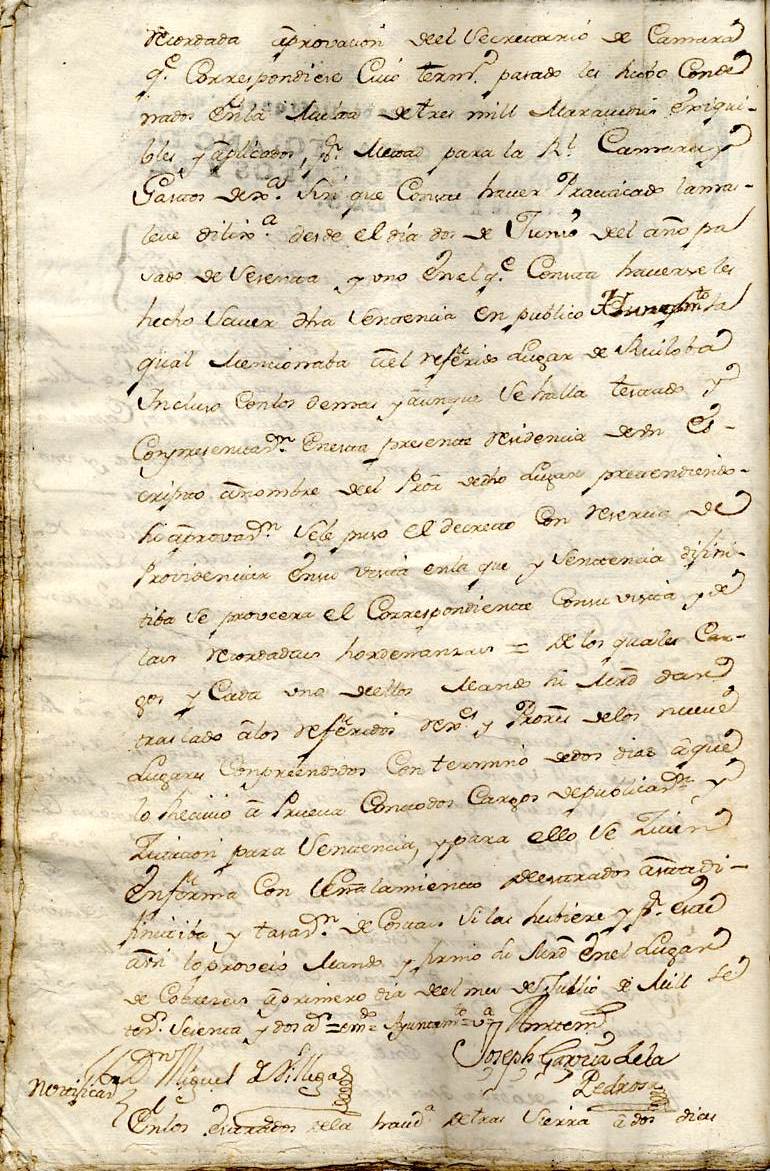 recordada aprovacion deel Secretario de Camara
q.e Correspondiese Cuio term.o pasado les hubo Conde
nados en la Multa de tres mill Maravedis exigui
bles y aplicados, p.r Mitad para la R.l Camara y
Gastos de sin que Conste haver Practicado la mas
leve dilix.a desde el dia dos de Junio del año pa
sado de Sesenta y uno en el q.e Consta haverse les
hecho Saver dha Sentencia en publico la
qual Mencionaba a el referido Lugar de Ruiloba
Incluso Con los demas y aunque se halla y
Conpresentaz.n en esta presente residencia de un es-
cripto a nombre del Pror de dho Lugar pretendiendo
aprovaz.n se le puso el decreto Con reserva de
Providenciar en su vista en la que y Sentencia difini
tiba se proveera el Correspondiente Con su vista y de
las recordadas hordenanzas = de los quales Car-
gos y Cada uno de ellos Mando su Mrd dar
traslado a los referidos y Prores de los nueve
Lugares Conpreendidos Con termino de dos dias a que
lo recivio a Prueva Con todos Cargos de publicaz.n y
Zitacion para Sentencia, y para ello se Ziten
en forma Con Señalamiento de estrados asta di-
finitiba y tasaz.n de Costas si las hubiere y p.r este
asi lo proveio Mando y firmo su Mrd en el Lugar
de Cobreces a primero dia deel mes de Jullio de Mill se
tez.s Sesenta y dos a.s = em.do = Ayuntam.to = v.a Antemi
Dn Miguel de Villegas Joseph Garcia de la
Notificaz.on Pedrosa
En los estrados de la haud.a de tras Sierra a dos dias